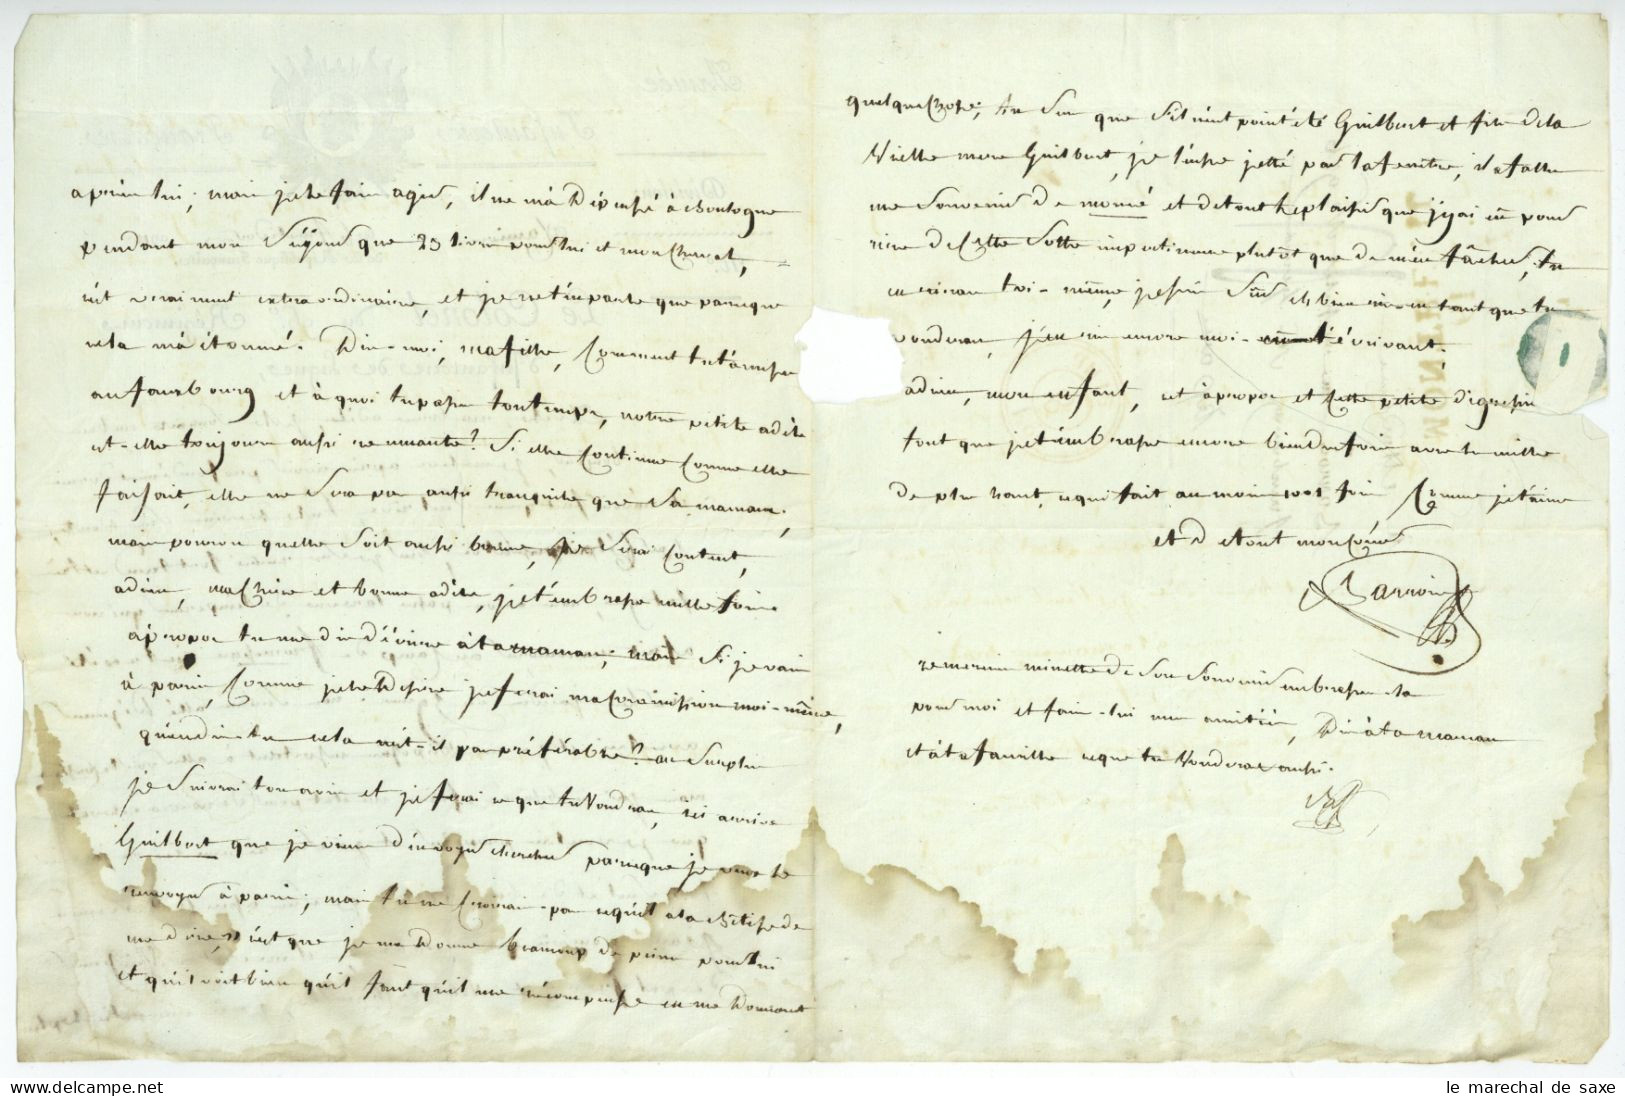 après lui; mais je le fais agir, il ne m'a dépensé à Boulogne
pendant mon séjour que 23 livres pour lui et mon cheval,
c'est vraiment extraordinaire, et je ne t'en parle que parceque
cela m'a étonné. Dis-moi, ma fille, comment tu t'amuses
au fauxbourg et à quoi tu passes ton temps, notre petite adèle
est-elle toujours aussi remuante? Si elle continue comme elle
faisait, elle ne sera pas aussi tranquile que sa maman;
mais pourvu quelle soit aussi bonne, je serai content,
adieu, ma chère et bonne adèle, je t'embrasse mille fois.
àpropos tu me dis d'écrire à ta maman; mais si je vais
à paris, comme je le désire je ferai ma commission moi-même,
qu'en dis-tu cela n'est-il pas préférable? au surplus
je suivrai ton avis et je ferai ce que tu voudras, ici arrive
Guilbert que je viens d'envoyer chercher parceque je veux le
renvoyer à paris; mais tu ne croirais-pas qu'il a la bêtise de
me dire, c'est que je me donne beaucoup de peine pour lui
et qu'il voit bien qu'il faut qu'il me récompense en me donnant
quelquechose; tu sens que s'il n'eut point été Guilbert et fils de la
vieille mere Guilbert, je l'eusse jetté par la fenêtre, il a fallu
me souvenir de et de tout le plaisir que j'y ai eu pour
rire de cette sotte impertinence plutôt que de m'en fâcher, tu
en riras toi-même, je suis sûr eh bien ris-en tant que tu
voudras, j'en ris encore moi-même t'écrivant.
adieu, mon enfant, et àpropos et cette petite digression
font que je t'embrasse encore bien des fois avec les mille
de plus haut, ce qui fait au moins 1001 fois comme je t'aime
et de tout mon cœur
Barrois
remercie minette de son souvenir embrasse-la
pour moi et fais-lui mes amitiés, Dis à ta maman
et à ta famille ce que tu voudras aussi.
le marechal de saxe